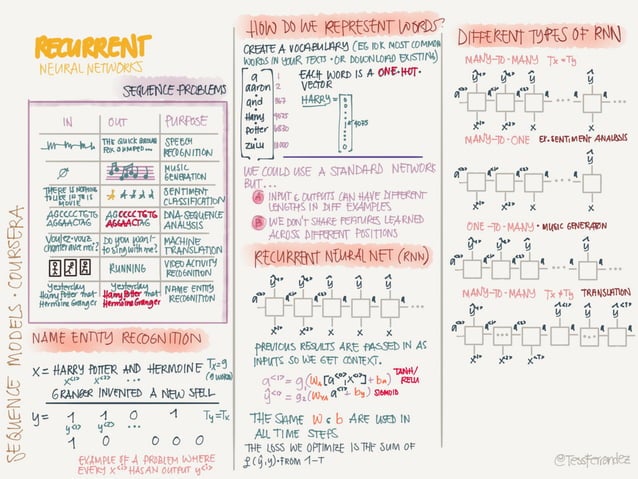 RECURRENT
NEURAL NETWORKS
SEQUENCE PROBLEMS
IN OUT PURPOSE
THE QUICK BROWN
FOX JUMPED...
SPEECH
RECOGNITION
∅
MUSIC
GENERATION
THERE IS NOTHING
TO LIKE IN THIS
MOVIE
SENTIMENT
CLASSIFICATION
AGCCCCTGTG
AGGAACTAG
AGCCCCTGTG
AGGAACTAG
DNA-SEQUENCE
ANALYSIS
Voulez-vous
chanter avec moi?
Do you want
to sing with me?
MACHINE
TRANSLATION
RUNNING
VIDEO ACTIVITY
RECOGNITION
Yesterday
Harry Potter met
Hermione Granger
Yesterday
Harry Potter met
Hermione Granger
NAME ENTITY
RECOGNITION
NAME ENTITY RECOGNITION
X = HARRY POTTER AND HERMOINE Tx=9
x<1> x<2> ... (9 WORDS)
GRANGER INVENTED A NEW SPELL
y = 1 1 0 1 Ty=Tx
y<1> y<2> ...
1 0 0 0 0
EXAMPLE OF A PROBLEM WHERE
EVERY X<i> HAS AN OUTPUT y<i>
SEQUENCE MODELS · COURSERA
HOW DO WE REPRESENT WORDS?
CREATE A VOCABULARY (EG 10K MOST COMMON
WORDS IN YOUR TEXTS · OR DOWNLOAD EXISTING)
a 1
aaron 2
and 367
Harry 4075
Potter 6830
zulu 10000
EACH WORD IS A ONE-HOT-
VECTOR
HARRY =
4075
WE COULD USE A STANDARD NETWORK
BUT...
A INPUT & OUTPUTS CAN HAVE DIFFERENT
LENGTHS IN DIFF EXAMPLES
B WE DON'T SHARE FEATURES LEARNED
ACROSS DIFFERENT POSITIONS
RECURRENT NEURAL NET (RNN)
ŷ ŷ ŷ ŷ ŷ
a a a a a ...
x x x x x
PREVIOUS RESULTS ARE PASSED IN AS
INPUTS SO WE GET CONTEXT.
TANH/
RELU
SIGMOID
THE SAME W & b ARE USED IN
ALL TIME STEPS
THE LOSS WE OPTIMIZE IS THE SUM OF
ℒ(ŷ,y) · FROM 1-T
DIFFERENT TYPES OF RNN
MANY-TO-MANY Tx=Ty
MANY-TO-ONE EX. SENTIMENT ANALYSIS
ONE-TO-MANY · MUSIC GENERATION
MANY-TO-MANY Tx≠Ty TRANSLATION
@TessFerrandez